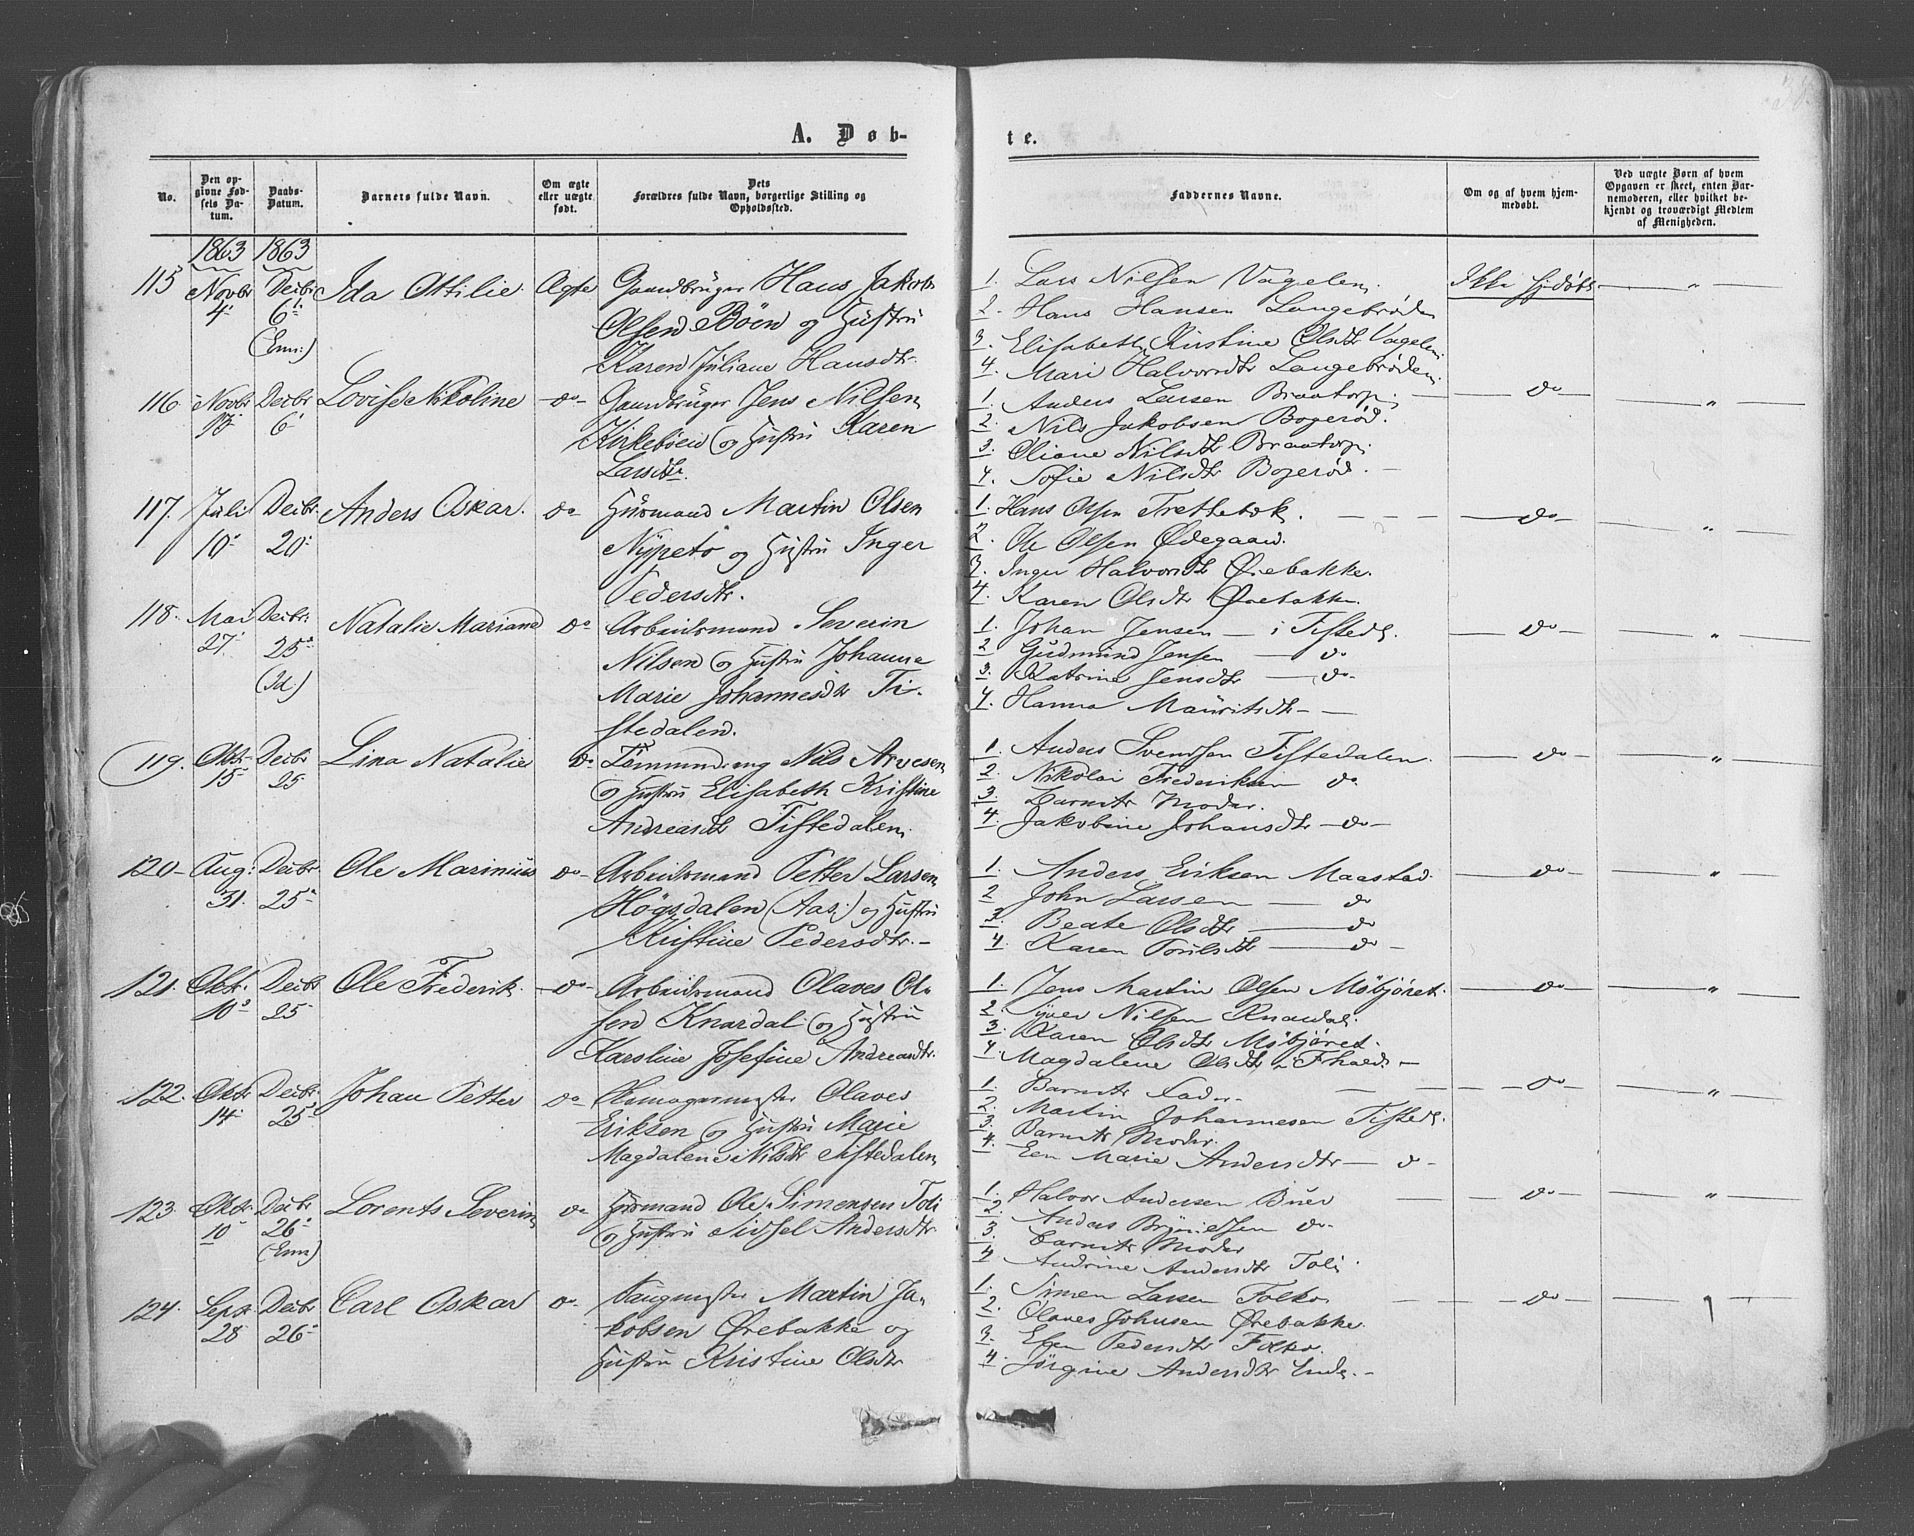 38.
A. Døb-
te.
No.
Den op-
givne Fød-
sels Da-
tum.
Daabs-
Datum.
Barnets fulde Navn.
Om ægte
eller uægte
født.
Dets
Forældres fulde Navn, borgerlige Stilling og
Opholdssted.
Faddernes Navne.
Om og af hvem hjem-
medøbt.
Ved uægte Børn af hvem
Opgaven er skeet, enten Bar-
nemoderen, eller hvilket be-
kjendt og troværdigt Medlem
af Menigheden.
1863 1863
115 Novbr 4. Decbr 6 (Enn:) Ida Ottilie Ægte
Gaardbruger Hans Jakob
Olsen Böen og Hustru
Karen Juliane Hansdtr
1. Lars Nilsen Vagelen
2. Hans Hansen Langebrøden
3. Elisabeth Kirstine Olsdtr Vagelen
4. Mari Halvorsdtr Langebrøden
Ikke hjdøbt — „ —
116 Novbr 13 Decbr 6 Lovise Nikoline — do —
Gaardbruger Jens Nilsen
Kirkebøen og Hustru Karen
Larsdtr.
1. Anders Larsen Braatorp
2. Nils Jakobsen Bogerød.
3. Oliane Nilsdtr Braatorp
4. Sofie Nilsdtr Bogerød. —
— do — — „ —
117. Juli 10 Decbr 20 Anders Oskar. do
Husmand Martin Olsen
Nypeto og Hustru Inger
Pedersdtr.
1. Hans Olsen Trettebok.
2. Ole Olsen Ødegaard.
3. Inger Halvorsdtr Ørebakke.
4. Karen Olsdtr Ørebakke.
— do — — „ —
118. Mai 27 Decbr 25 (Id.) Natalie Mariane do
Arbeidsmand Severin
Nilsen og Hustru Johanne
Marie Johannesdtr Ti-
stedalen.
1. Johan Jensen — i Tistedl.
2 Gudmund Jensen — do
3. Katrine Jensdtr — do —
4. Hanna Mauritsdtr — —
— do — — „ —
119. Oktr 15 Decbr 25 Lina Natalie do
Tømmermand Nils Arvesen
og Hustru Elisabeth Kristine
Andreasdtr Tistedalen
1. Anders Svendsen Tistedalen
2. Nikolai Frederiksen do
3. Barnets Moder.
4. Jakobine Johansdtr — do —
— do — — „ —
120 — Aug: 31. Decbr 25 Ole Marinius do —
Arbeidsmand Petter Larsen
Högsdalen (Aas.) og Hustru
Kristine Pedersdtr. —
1. Anders Eriksen Maastad.
2 John Larsen — do
3. Beate Olsdtr — do
4. Karen Poulsdtr — do —
— do — — „ —
121. Oktr. 10 Decbr 25 Ole Frederik. — do —
Arbeidsmand Olaves Ol-
sen Knardal og Hustru
Karoline Josefine Andreasdtr.
1. Jens Martin Olsen Möbjöret.
2. Syver Nilsen Knardal
3. Karen Olsdtr Möbjöret.
4. Magdalene Olsdtr
— do — — „ —
122. Oktr 14. Decbr 25 Johan Petter do
Olaves
Eriksen og Hustru Marie
Magdalene Nilsdtr Tistedalen
1. Barnets Fader.
2. Martin Johannesen Tistedl.
3. Barnets Moder.
4. Een Marie Andersdtr — do —
— do — — „ —
123. Oktr. 10 Decbr 26 (Enn) Lorents Severin do
Husmand Ole Simensen Toli
og Hustru Sissel Andersdtr.
1. Halvor Andersen Buer
2. Anders Brynielsen do.
3. Barnets Moder
4 Andrine Andersdtr Toli.
— do — — „ —
124. Sept. 28 Decbr 26 Carl Oskar do
Saugmester Martin Ja-
kobsen Ørebakke og
Hustru Kristine Olsdtr
1. Simen Larsen Folko
2. Olaves Johnsen Ørebakke.
3. Elen Pedersdtr Folko.
4. Jörgine Andersdtr
— do —